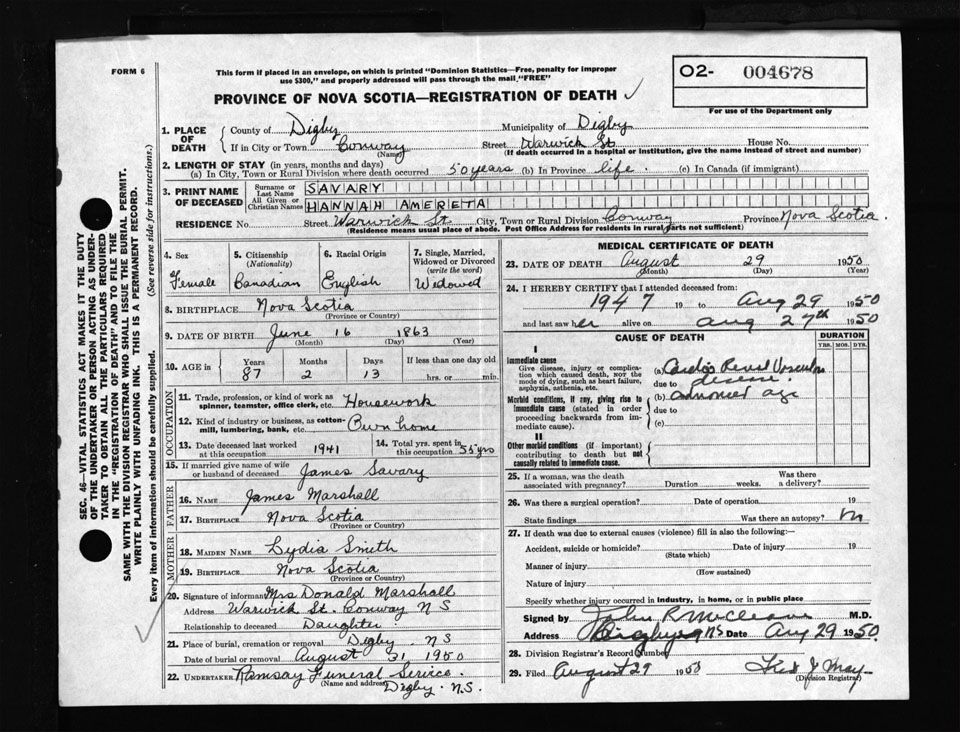 FORM 6
This form if placed in an envelope, on which is printed "Dominion Statistics—Free, penalty for improper
use $300," and properly addressed will pass through the mail "FREE"
O2- 004678
For use of the Department only
PROVINCE OF NOVA SCOTIA—REGISTRATION OF DEATH ✓
SEC. 46—VITAL STATISTICS ACT MAKES IT THE DUTY
OF THE UNDERTAKER OR PERSON ACTING AS UNDER-
TAKER TO OBTAIN ALL THE PARTICULARS REQUIRED
IN THE "REGISTRATION OF DEATH" AND TO FILE THE
SAME WITH THE DIVISION REGISTRAR WHO SHALL ISSUE THE BURIAL PERMIT.
WRITE PLAINLY WITH UNFADING INK. THIS IS A PERMANENT RECORD.
Every item of information should be carefully supplied. (See reverse side for instructions.)
1. PLACE OF DEATH
County of Digby Municipality of Digby
If in City or Town Conway Street Warwick St House No.
(Name) (If death occurred in a hospital or institution, give the name instead of street and number)
2. LENGTH OF STAY (in years, months and days)
(a) In City, Town or Rural Division where death occurred 50 years (b) In Province life. (c) In Canada (if immigrant)
3. PRINT NAME OF DECEASED
Surname or Last Name SAVARY
All Given or Christian Names HANNAH AMERETA
RESIDENCE No. Street Warwick St City, Town or Rural Division Conway Province Nova Scotia.
(Residence means usual place of abode. Post Office Address for residents in rural parts not sufficient)
4. Sex 5. Citizenship (Nationality) 6. Racial Origin 7. Single, Married, Widowed or Divorced (write the word)
Female Canadian English Widowed
8. BIRTHPLACE Nova Scotia
(Province or Country)
9. DATE OF BIRTH June 16 1863
(Month) (Day) (Year)
10. AGE in Years Months Days If less than one day old
87 2 13 hrs. or min.
OCCUPATION
11. Trade, profession, or kind of work as
spinner, teamster, office clerk, etc. Housework
12. Kind of industry or business, as cotton-
mill, lumbering, bank, etc. Own home
13. Date deceased last worked
at this occupation 1941
14. Total yrs. spent in
this occupation 55 yrs
15. If married give name of wife
or husband of deceased James Savary
FATHER
16. NAME James Marshall
17. BIRTHPLACE Nova Scotia
(Province or Country)
MOTHER
18. MAIDEN NAME Lydia Smith
19. BIRTHPLACE Nova Scotia
(Province or Country)
20. Signature of informant Mrs Donald Marshall
Address Warwick St. Conway N S
Relationship to deceased Daughter
21. Place of burial, cremation or removal Digby. NS
Date of burial or removal August 31 1950
22. UNDERTAKER Ramsay Funeral Service.
(Name and address) Digby. N.S.
MEDICAL CERTIFICATE OF DEATH
23. DATE OF DEATH August 29 1950
(Month) (Day) (Year)
24. I HEREBY CERTIFY that I attended deceased from:
1947 19 to Aug 29 1950
and last saw her alive on Aug 27th 1950
CAUSE OF DEATH DURATION
YRS. MOS. DYS.
I
Immediate cause
Give disease, injury or complica-
tion which caused death, NOT the
mode of dying, such as heart failure,
asphyxia, asthenia, etc.
(a) Cardio Renal Vascular
due to disease.
Morbid conditions, if any, giving rise to
immediate cause (stated in order
proceeding backwards from im-
mediate cause).
(b) advanced age
due to
(c)
II
Other morbid conditions (if important)
contributing to death but not
causally related to immediate cause.
25. If a woman, was the death
associated with pregnancy? Duration weeks. Was there
a delivery?
26. Was there a surgical operation? Date of operation 19
State findings Was there an autopsy?
27. If death was due to external causes (violence) fill in also the following:—
Accident, suicide or homicide? Date of injury 19
(State which)
Manner of injury
(How sustained)
Nature of injury
Specify whether injury occurred in industry, in home, or in public place
Signed by John R McCleave M.D.
Address Digby NS Date Aug 29 1950.
28. Division Registrar's Record Number
29. Filed August 29 1950 J May
(Division Registrar)